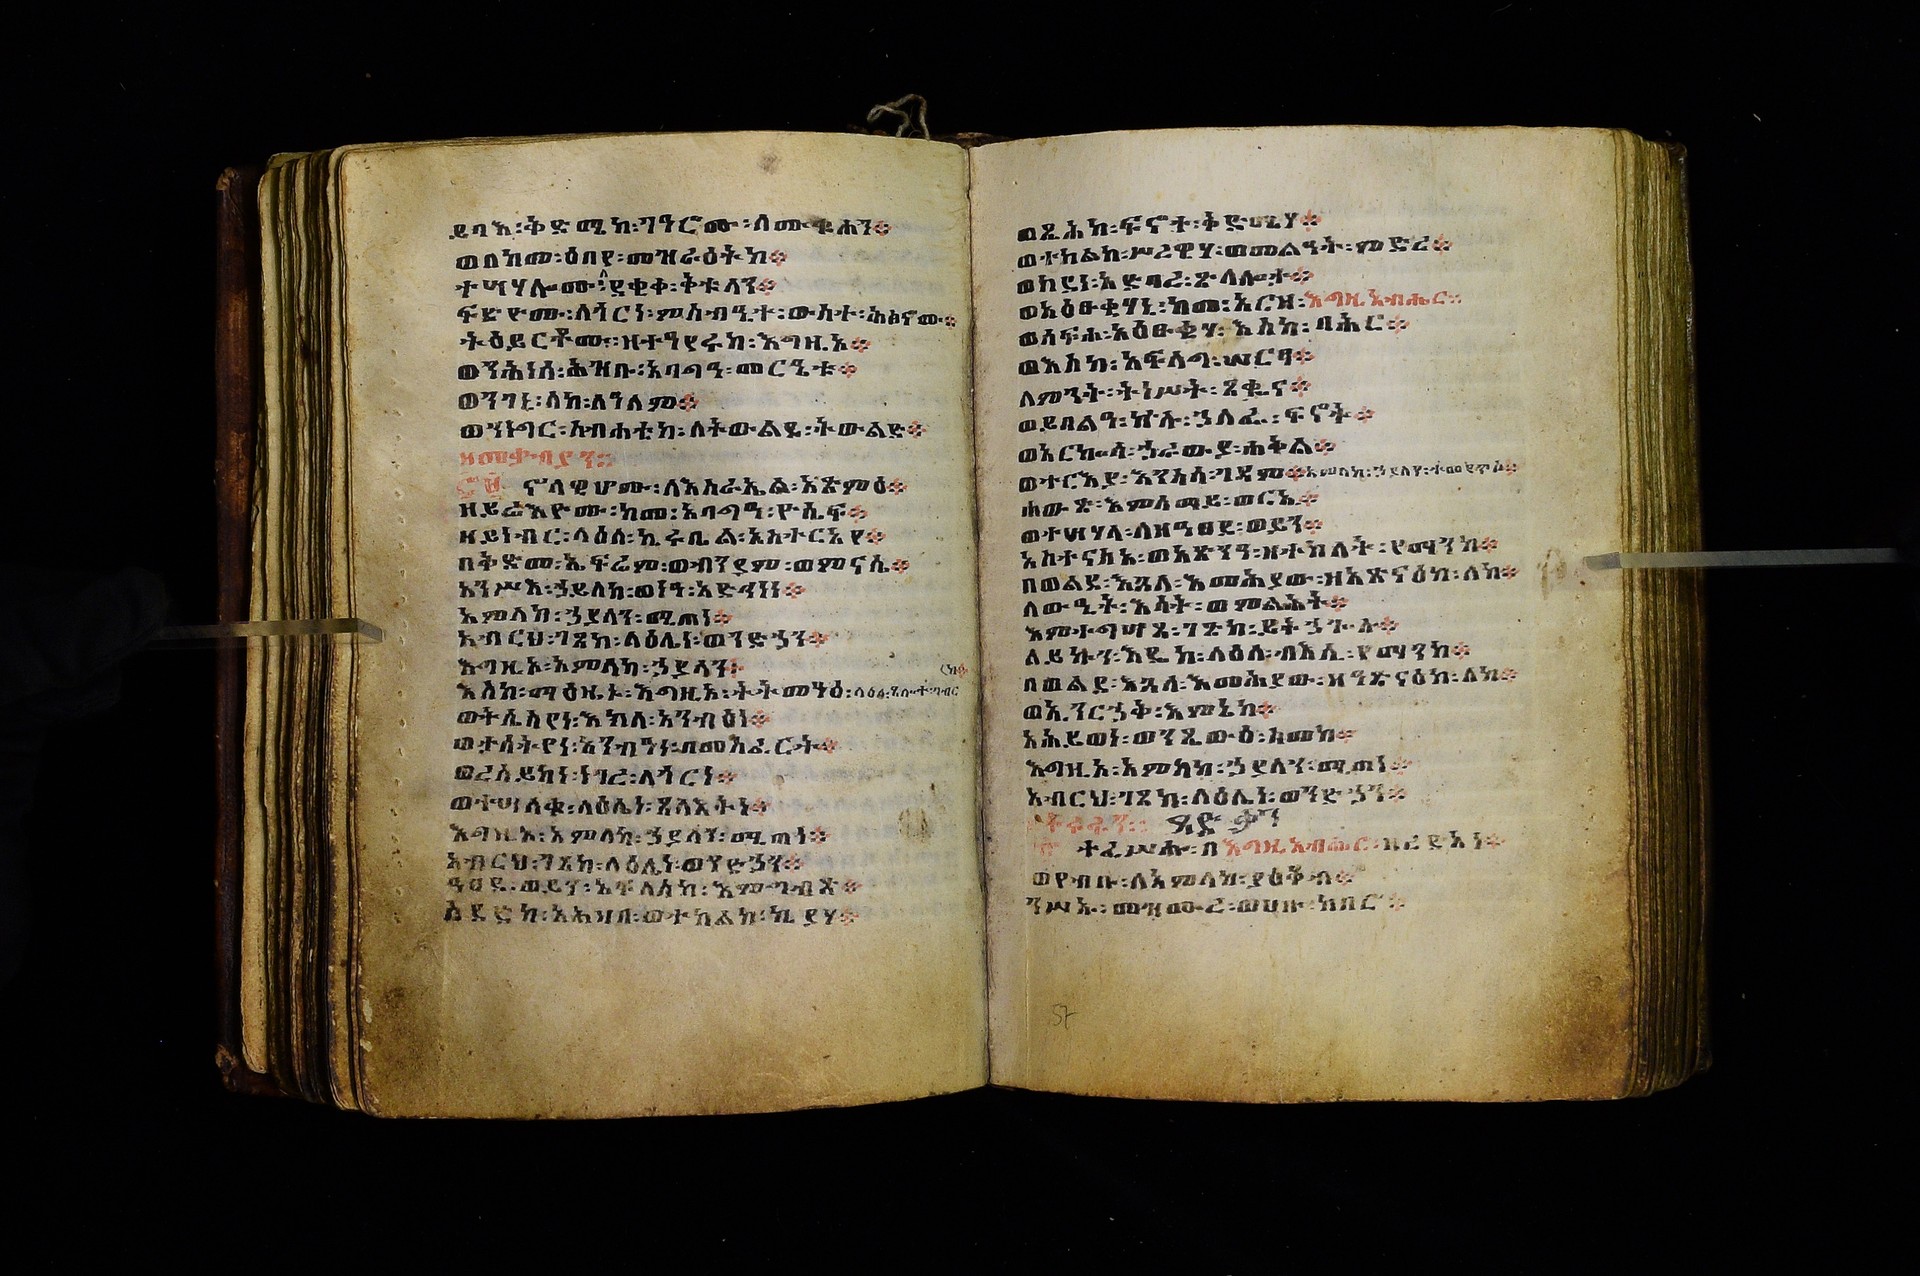 ይባእ፡ቅድሜከ፡ገዓሮሙ፡ለሙቁሐን፨
ተሣሃሎሙ፡ለደቂቀ፡ቅቱላን፨
ፍድዮሙ፡ለጎርነ፡ምስብዒተ፡ውስተ፡ሕፅኖሙ፨
ትዕይርቶሙ፡ዘተዓየሩከ፡እግዚኦ፨
ወንሕነሰ፡ሕዝቡ፡አባግዓ፡መርዔቱ፨
ወንገኒ፡ለከ፡ለዓለም፨
ወንነግር፡አብሐቲከ፡ለትውልደ፡ትውልድ፨
ዘመቃብያን፨
፸፱ ኖላዊሆሙ፡ለእስራኤል፡አጽምዕ፨
ዘይሬእዮሙ፡ከመ፡አባግዓ፡ዮሴፍ፨
ዘይነብር፡ላዕለ፡ኪሩቤል፡አስተርአየ፨
በቅድመ፡ኤፍሬም፡ወብንያም፡ወምናሴ፨
አንሥእ፡ኃይለከ፡ወነዓ፡አድኅነነ፨
አምላከ፡ኃያላን፡ሚጠነ፨
አብርህ፡ገጸከ፡ላዕሌነ፡ወንድኅን፨
እግዚኦ፡አምላከ፡ኃያላን፡
እስከ፡ማዕዜኑ፡እግዚኦ፡ትትመዓዕ፡ላዕለ፡ጸሎተ፡ገብርከ፨
ወትሴስየነ፡እክለ፡አንብዕነ፨
ወታሰትየነ፡አንብዓነ፡በመስፈርት፨
ወረሰይከነ፡ነገረ፡ለጎርነ፨
ወተሣለቁ፡ላዕሌነ፡ጸላእትነ፨
እግዚኦ፡አምላከ፡ኃያላን፡ሚጠነ፨
አብርህ፡ገጸከ፡ላዕሌነ፡ወንድኅን፨
ዓፀደ፡ወይን፡አፍለስከ፡እምግብጽ፨
ሰደድከ፡አሕዛበ፡ወተከልከ፡ኪያሃ፨
ወጼሕከ፡ፍኖተ፡ቅድሜሃ፨
ወተከልከ፡ሥረዊሃ፡ወመልዓት፡ምድረ፨
ወከደነ፡አድባረ፡ጽላሎታ፨
ወአዕፁቂሃኒ፡ከመ፡አርዘ፡እግዚአብሔር፨
ወሰፍሐ፡አዕፁቂሃ፡እስከ፡ባሕር፨
ወእስከ፡አፍላግ፡ሠርፃ፨
ለምንት፡ትነሥት፡ጸቁና፨
ወይበልዓ፡ኵሉ፡ኃላፌ፡ፍኖት፨
ወአርኰሳ፡ኃራውያ፡ሐቅል፨
ወተርእያ፡እንስሳ፡ገዳም፨አምላከ፡ኃያላን፡ተመየጥሶ፨
ሐውጽ፡እምሰማይ፡ወርኢ፨
ወተሣሃላ፡ለዛዓፀደ፡ወይን፨
አስተናሥኣ፡ወአጽንዓ፡ዘተከለት፡የማንከ፨
በወልደ፡እጓለ፡እመሕያው፡ዘአጽናዕከ፡ለከ፨
ለውዒት፡እሳት፡ወምልሕት፨
እምተግሣጸ፡ገጽከ፡ይትኃጐሉ፨
ለይኩን፡እዴከ፡ላዕለ፡ብእሴ፡የማንከ፨
በወልደ፡እጓለ፡እመሕያው፡ዘዓጽናዕከ፡ለከ፨
ወኢንርኃቅ፡እምኔከ፨
አሕይወነ፡ወንጼውዕ፡ስመከ፨
እግዚኦ፡አምላከ፡ኃያላን፡ሚጠነ፨
አብርህ፡ገጸከ፡ላዕሌነ፡ወንድኅን፨
ጻድቃን
ተፈሥሑ፡በእግዚአብሔር፡ዘረድአነ፨
ወየብቡ፡ለአምላከ፡ያዕቆብ፨
ንሥኡ፡መዝሙረ፡ወሀቡ፡ከበሮ፨
57